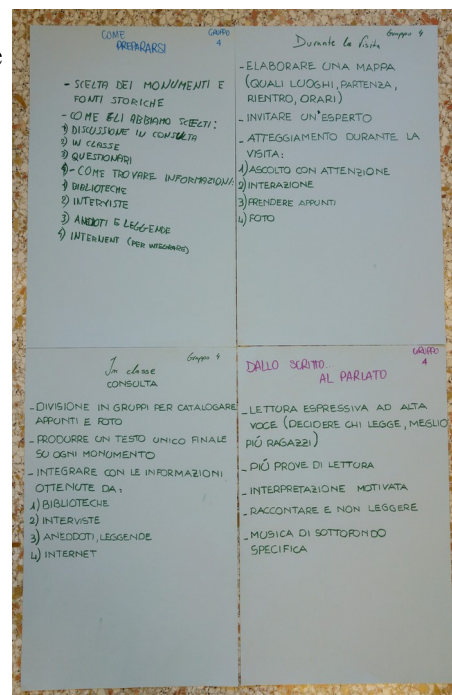 e
COME
PREPARARSI
GRUPPO
4
- SCELTA DEI MONUMENTI E
FONTI STORICHE
- COME GLI ABBIAMO SCELTI:
1) DISCUSSIONE IN CONSULTA
2) IN CLASSE
3) QUESTIONARI
4) - COME TROVARE INFORMAZIONI:
1) BIBLIOTECHE
2) INTERVISTE
3) ANEDDOTI E LEGGENDE
4) INTERNENT (PER INTEGRARE)
Durante la visita
Gruppo 4
- ELABORARE UNA MAPPA
(QUALI LUOGHI, PARTENZA,
RIENTRO, ORARI)
- INVITARE UN'ESPERTO
- ATTEGGIAMENTO DURANTE LA
VISITA:
1) ASCOLTO CON ATTENZIONE
2) INTERAZIONE
3) PRENDERE APPUNTI
4) FOTO
In classe
Gruppo 4
CONSULTA
- DIVISIONE IN GRUPPI PER CATALOGARE
APPUNTI E FOTO
- PRODURRE UN TESTO UNICO FINALE
SU OGNI MONUMENTO
- INTEGRARE CON LE INFORMAZIONI
OTTENUTE DA:
1) BIBLIOTECHE
2) INTERVISTE
3) ANEDDOTI, LEGGENDE
4) INTERNET
DALLO SCRITTO...
AL PARLATO
GRUPPO
4
- LETTURA ESPRESSIVA AD ALTA
VOCE (DECIDERE CHI LEGGE, MEGLIO
PIÚ RAGAZZI)
- PIÚ PROVE DI LETTURA
- INTERPRETAZIONE MOTIVATA
- RACCONTARE E NON LEGGERE
- MUSICA DI SOTTOFONDO
SPECIFICA